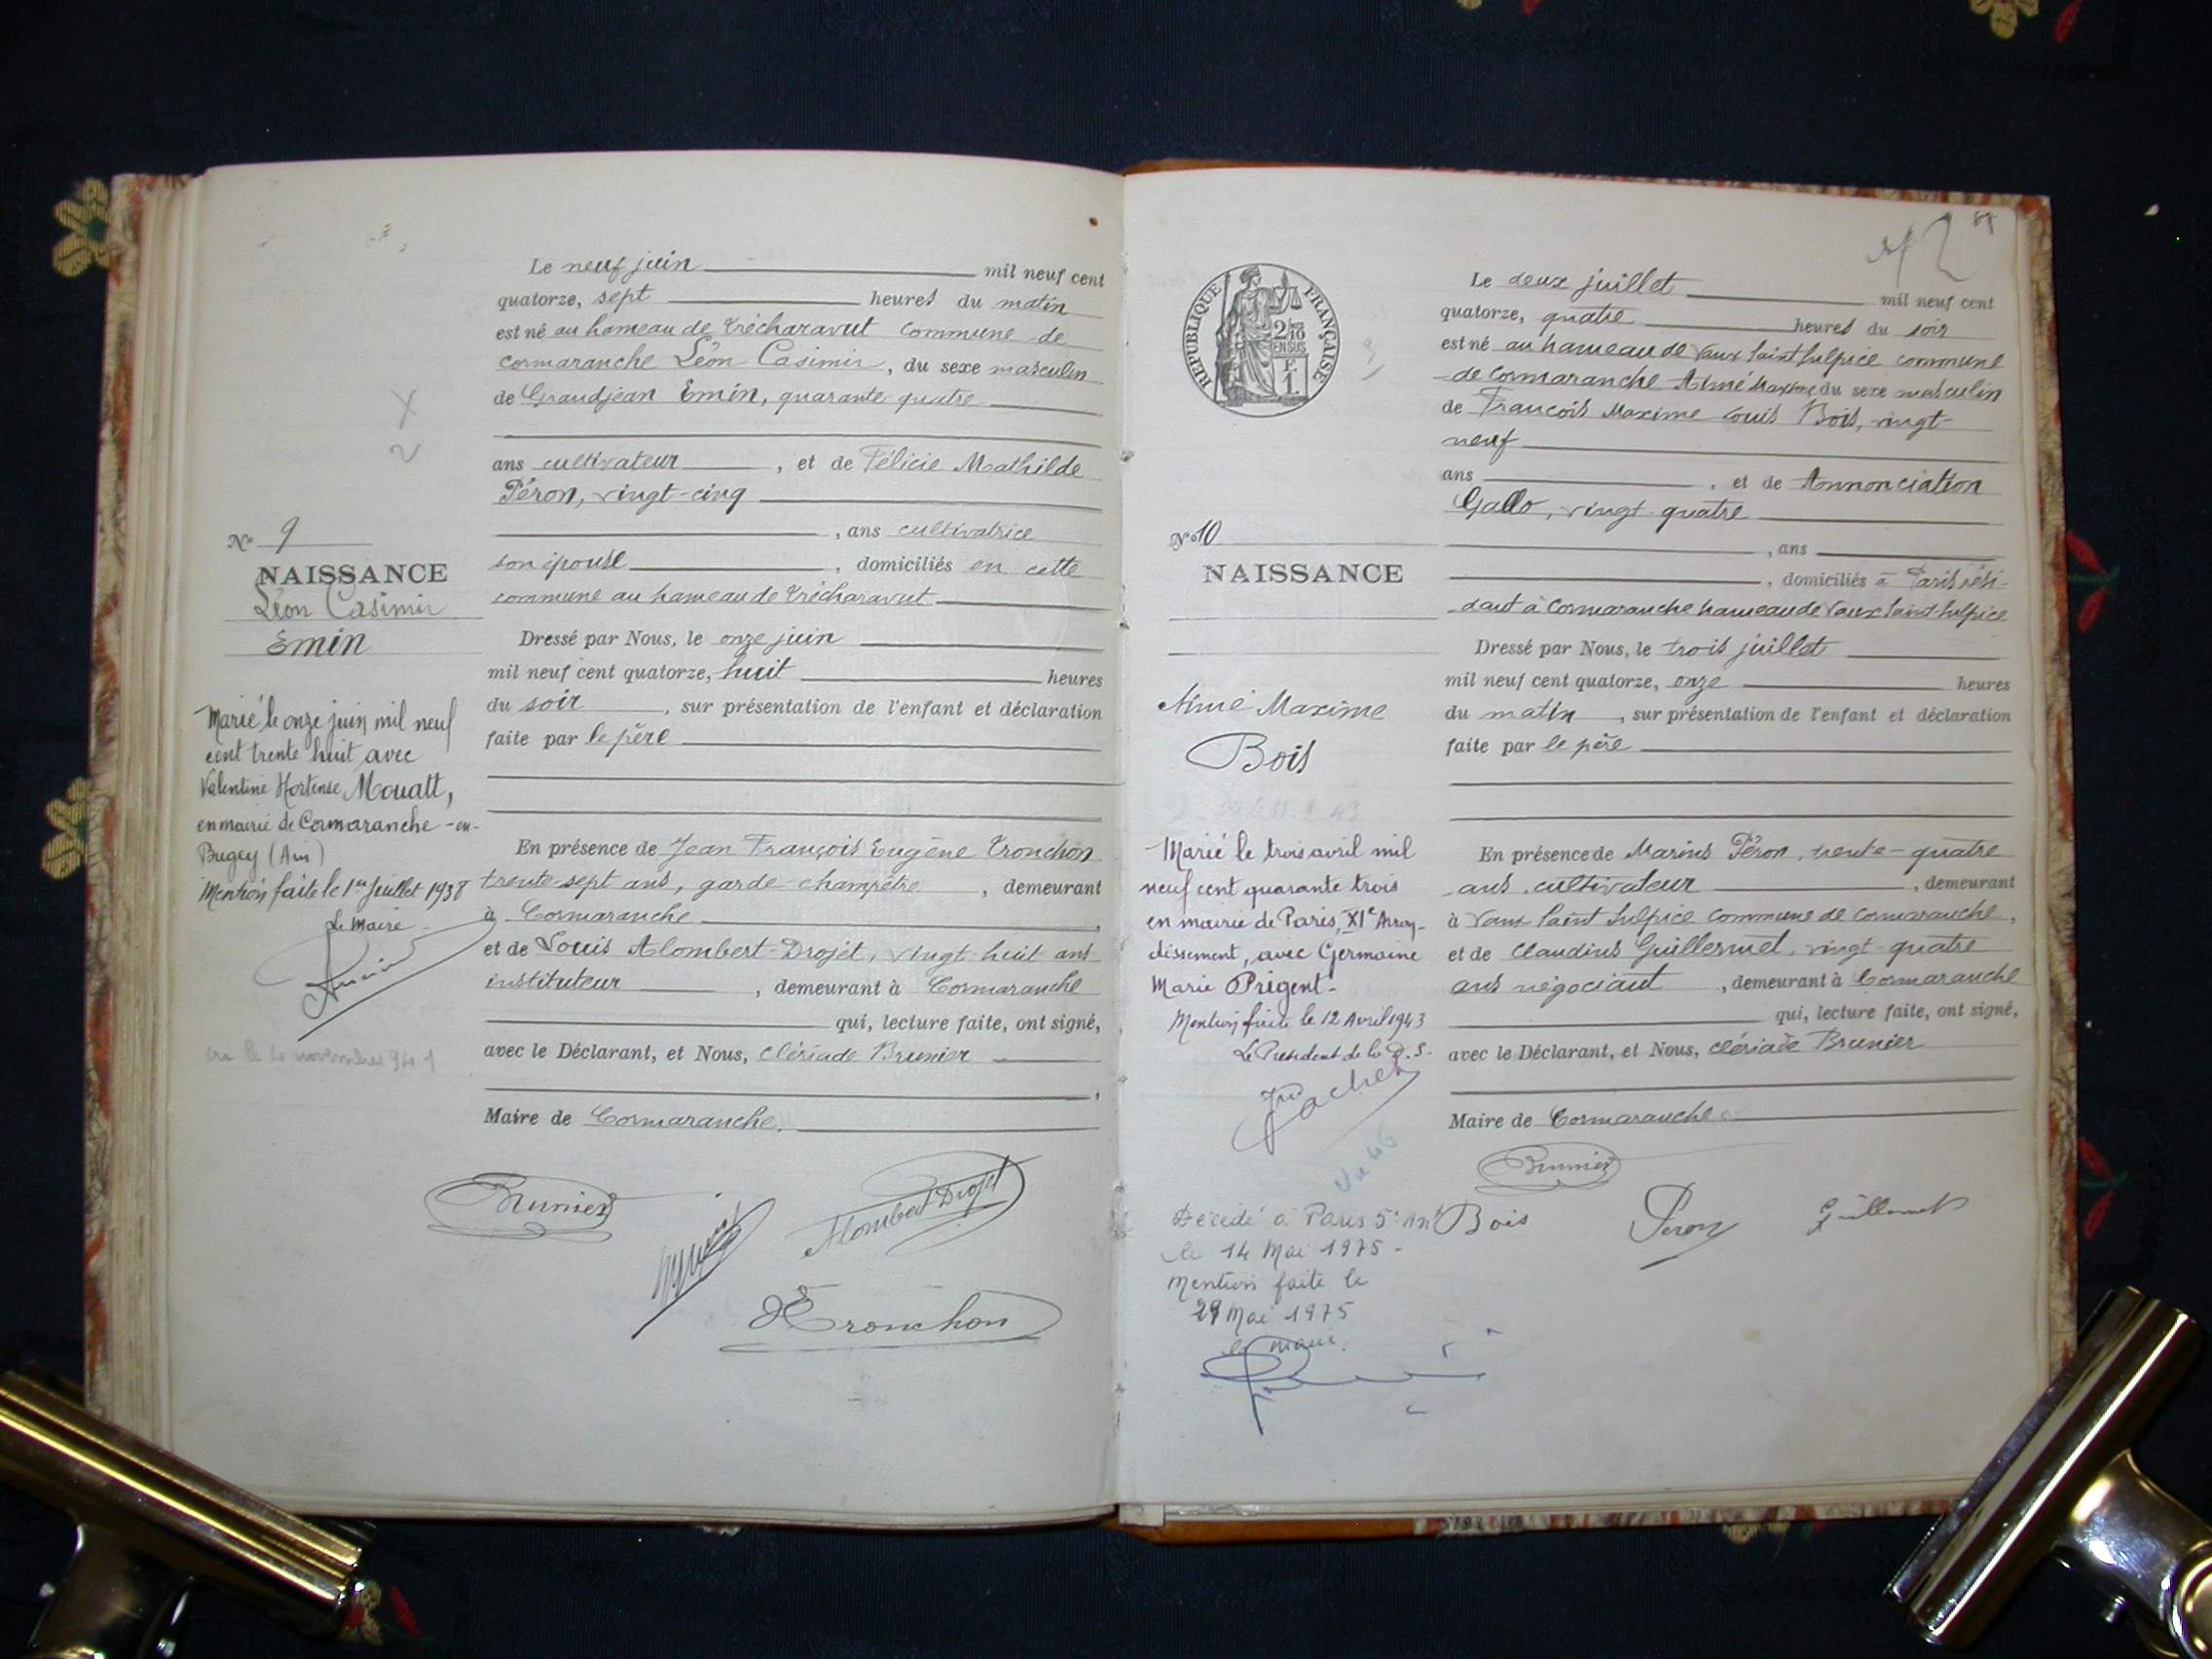 Le neuf juin mil neuf cent
quatorze, sept heures du matin
est né au hameau de Trécharavut commune de
Cormaranche Léon Casimir, du sexe masculin
de Grandjean Emin, quarante quatre
ans cultivateur, et de Félicie Mathilde
Péron, vingt-cinq
, ans cultivatrice
son épouse, domiciliés en cette
commune au hameau de Trécharavut
Dressé par Nous, le onze juin
mil neuf cent quatorze, huit heures
du soir, sur présentation de l'enfant et déclaration
faite par le père
En présence de Jean François Eugène Tronchon
trente-sept ans, garde champêtre, demeurant
à Cormaranche,
et de Louis Alombert-Drojet, vingt-huit ans
instituteur, demeurant à Cormaranche
qui, lecture faite, ont signé,
avec le Déclarant, et Nous, Clériade Brunier
,
Maire de Cormaranche.
Brunier
Alombert-Drojet
Tronchon
N° 9
NAISSANCE
Léon Casimir
Emin
Marié le onze juin mil neuf
cent trente huit avec
Valentine Hortense Mouatt,
en mairie de Cormaranche-en-
Bugey (Ain)
Mention faite le 1er Juillet 1938
Le Maire
2
RÉPUBLIQUE FRANÇAISE
2/10
EN SUS
F.
1.
Le deux juillet mil neuf cent
quatorze, quatre heures du soir
est né au hameau de Vaux Saint Sulpice commune
de Cormaranche Aimé Maxime du sexe masculin
de François Maxime Louis Bois, vingt-
neuf
ans, et de Annonciation
Gallo, vingt quatre
, ans
, domiciliés à Paris rési-
dant à Cormaranche hameau de Vaux Saint-Sulpice
Dressé par Nous, le trois juillet
mil neuf cent quatorze, onze heures
du matin, sur présentation de l'enfant et déclaration
faite par le père
En présence de Marius Péron, trente-quatre
ans, cultivateur, demeurant
à Vaux Saint Sulpice commune de Cormaranche,
et de Claudius Guillermet, vingt-quatre
ans négociant, demeurant à Cormaranche
qui, lecture faite, ont signé,
avec le Déclarant, et Nous, Clériade Brunier
Maire de Cormaranche
Brunier
Bois
Peron
Guillermet
N° 10
NAISSANCE
Aimé Maxime
Bois
Marié le trois avril mil
neuf cent quarante trois
en mairie de Paris, XIe Arron-
dissement, avec Germaine
Marie Prigent-
Mention faite le 12 Avril 1943
Le Président de la D.S.
Décédé à Paris 5e Art
le 14 Mai 1975-
Mention faite le
29 Mai 1975
le maire.